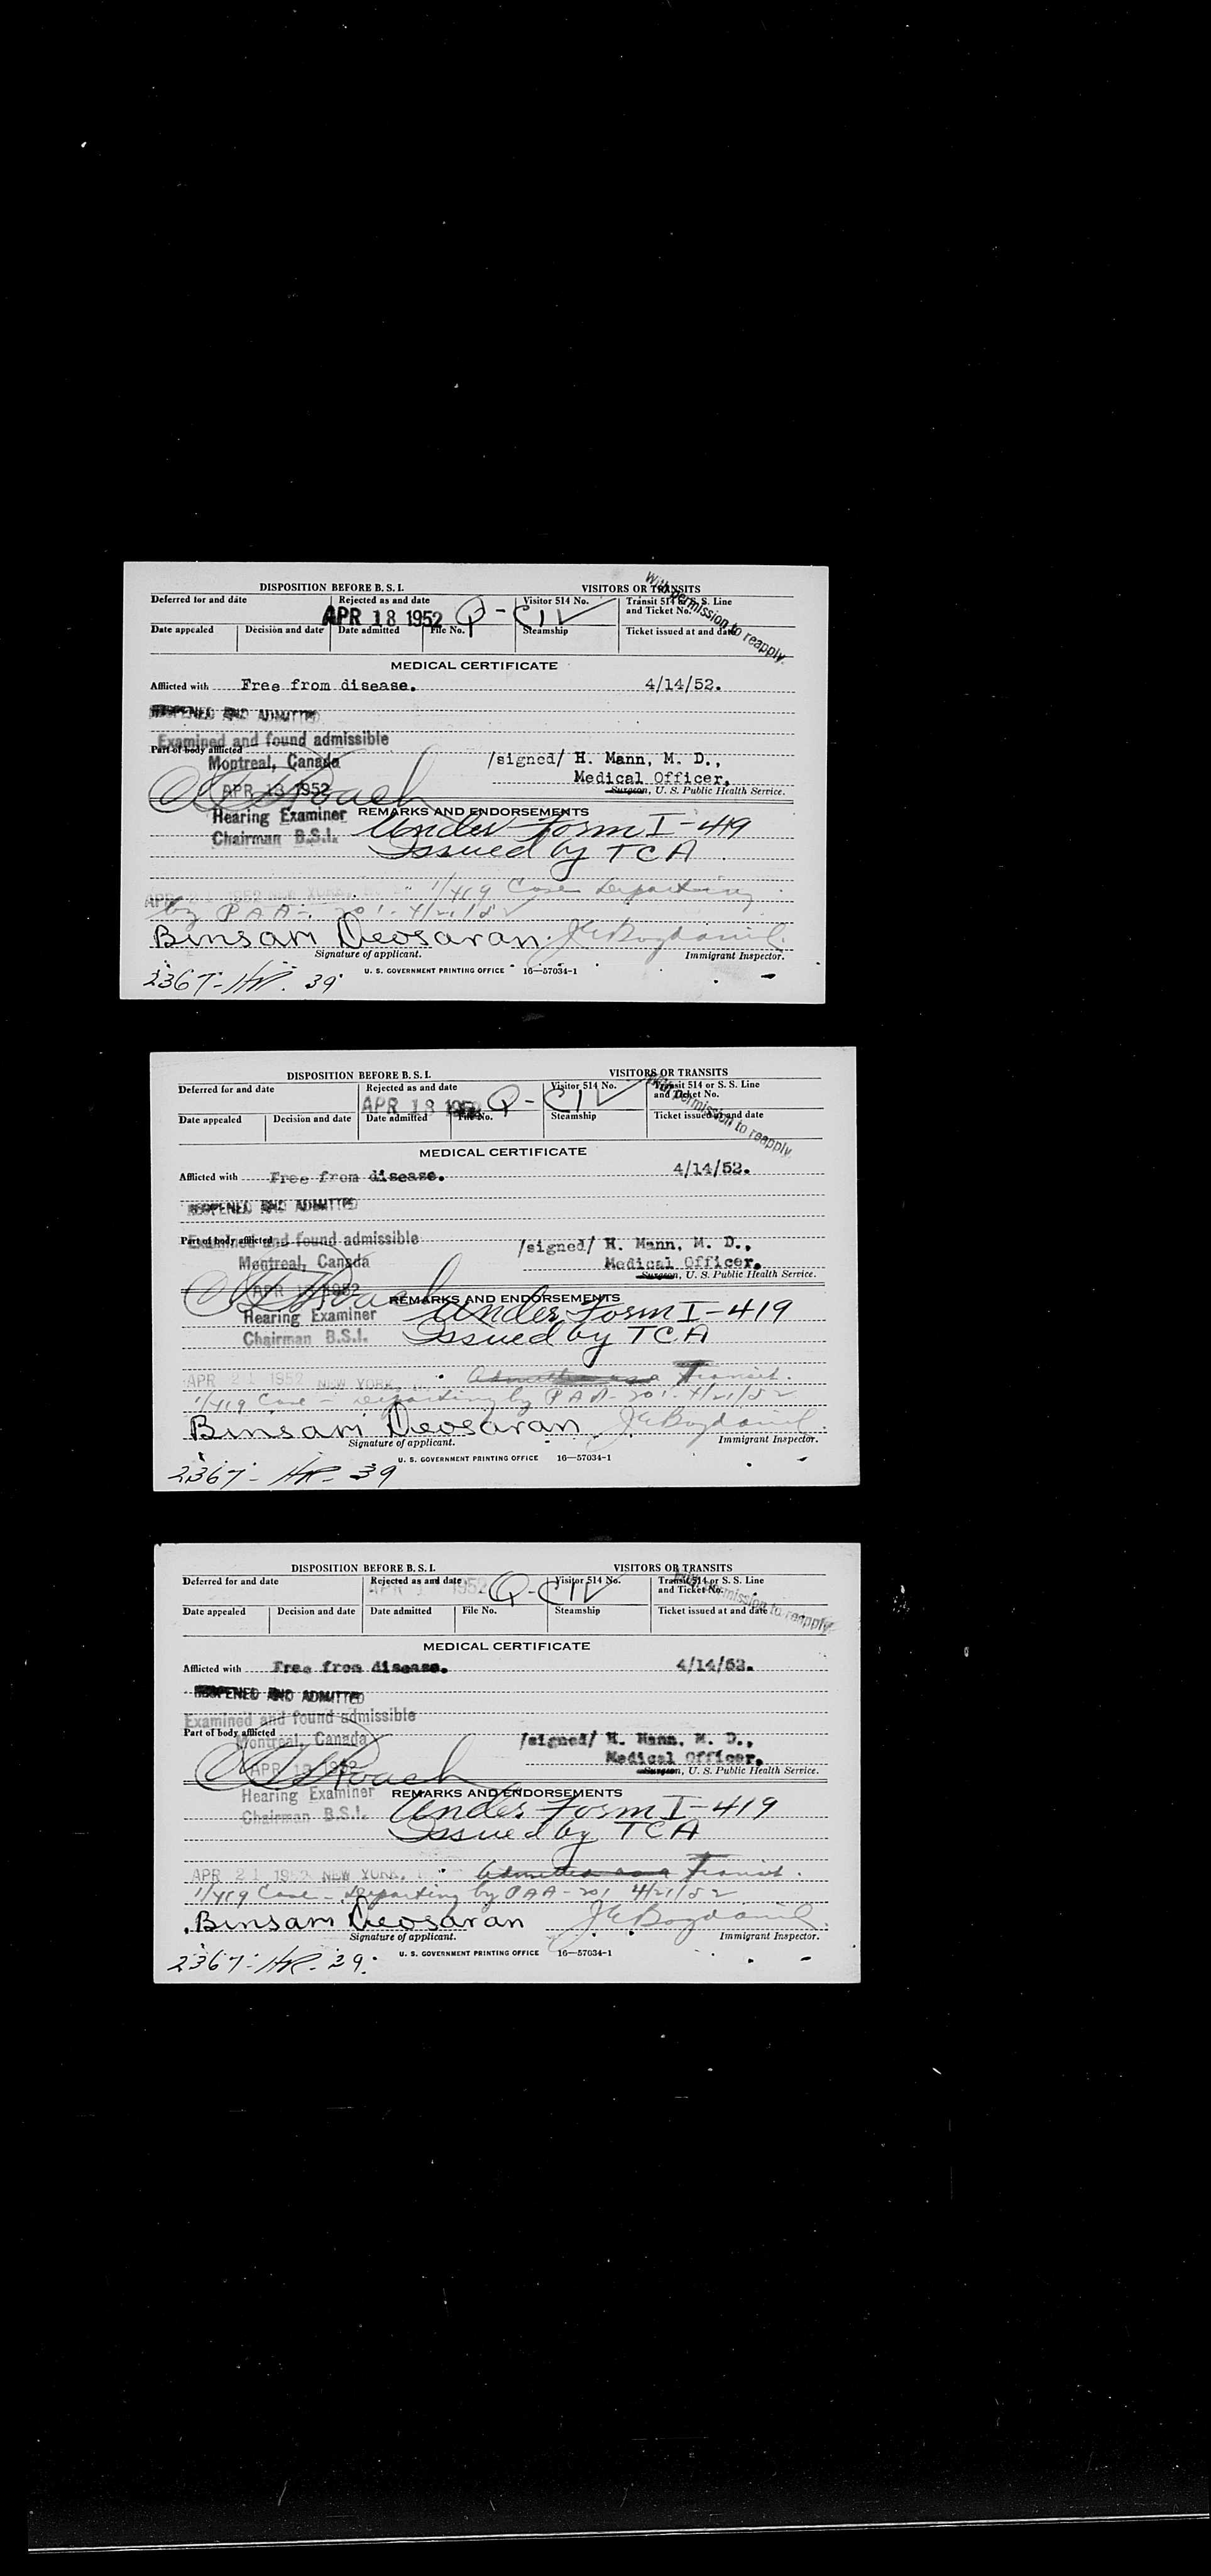 DISPOSITION BEFORE B. S. I. VISITORS OR TRANSITS
Deferred for and date Rejected as and date Visitor 514 No. Transit 514 or S. S. Line and Ticket No.
With permission to reapply.
APR 18 1952 Q - CIV
Date appealed Decision and date Date admitted File No. Steamship Ticket issued at and date
MEDICAL CERTIFICATE
Afflicted with Free from disease. 4/14/52.
REOPENED AND ADMITTED
Examined and found admissible
Part of body afflicted
Montreal, Canada /signed/ H. Mann, M. D.,
Medical Officer,
APR 18 1952 Surgeon, U. S. Public Health Service.
Roach
Hearing Examiner REMARKS AND ENDORSEMENTS
Chairman B.S.I. Under Form I-419
Issued by TCA
APR 21 1952 NEW YORK, 1/419 Case Departing
by PAA - 201 - 4/21/52
Binsam Deosaran
Signature of applicant. Immigrant Inspector.
U. S. GOVERNMENT PRINTING OFFICE 16—57034-1
2367- 39
DISPOSITION BEFORE B. S. I. VISITORS OR TRANSITS
Deferred for and date Rejected as and date Visitor 514 No. Transit 514 or S. S. Line and Ticket No.
With permission to reapply.
APR 18 1952 Q - CIV
Date appealed Decision and date Date admitted File No. Steamship Ticket issued at and date
MEDICAL CERTIFICATE
Afflicted with Free from disease. 4/14/52.
REOPENED AND ADMITTED
Part of body afflicted
Examined and found admissible
Montreal, Canada /signed/ H. Mann, M. D.,
Medical Officer,
APR 18 1952 Surgeon, U. S. Public Health Service.
Roach
REMARKS AND ENDORSEMENTS
Hearing Examiner Under Form I-419
Chairman B.S.I. Issued by TCA
APR 21 1952 NEW YORK, Admitted as a Transit.
1/419 Case - Departing by PAA - 201 - 4/21/52
Binsam Deosaran
Signature of applicant. Immigrant Inspector.
U. S. GOVERNMENT PRINTING OFFICE 16—57034-1
2367- 39
DISPOSITION BEFORE B. S. I. VISITORS OR TRANSITS
Deferred for and date Rejected as and date Visitor 514 No. Transit 514 or S. S. Line and Ticket No.
With permission to reapply.
APR 1952 Q - CIV
Date appealed Decision and date Date admitted File No. Steamship Ticket issued at and date
MEDICAL CERTIFICATE
Afflicted with Free from disease. 4/14/52.
REOPENED AND ADMITTED
Examined and found admissible
Part of body afflicted
Montreal, Canada /signed/ H. Mann, M. D.,
Medical Officer,
APR 18 1952 Surgeon, U. S. Public Health Service.
Roach
Hearing Examiner REMARKS AND ENDORSEMENTS
Chairman B.S.I. Under Form I-419
Issued by TCA
APR 21 1952 NEW YORK, Admitted as a Transit.
1/419 Case - Departing by PAA - 201 4/21/52
Binsam Deosaran
Signature of applicant. Immigrant Inspector.
U. S. GOVERNMENT PRINTING OFFICE 16—57034-1
2367- 39